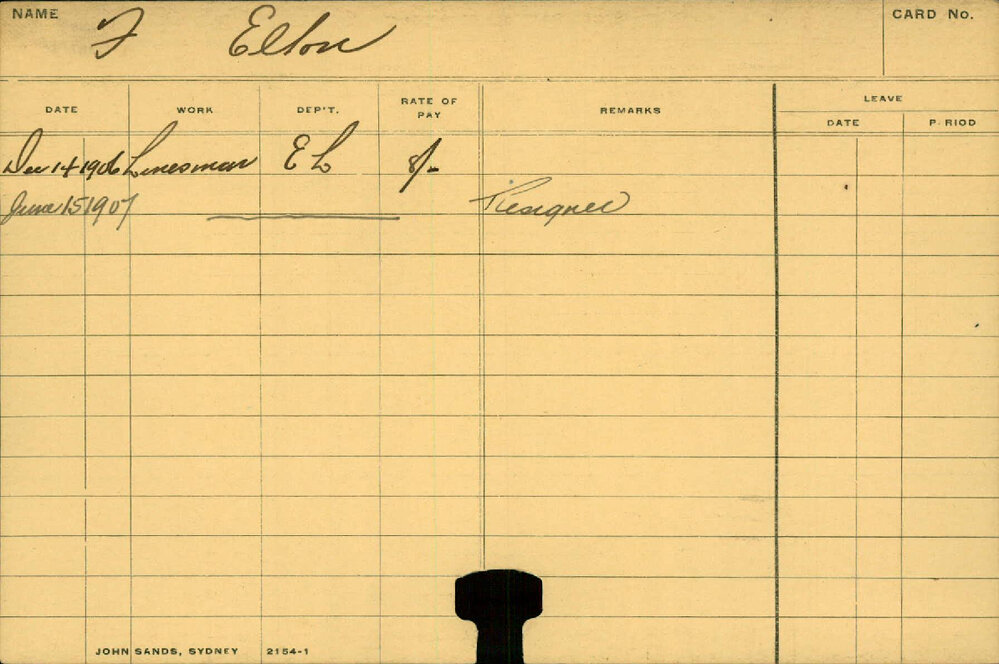 NAME F Elton CARD No.
DATE WORK DEP'T. RATE OF PAY REMARKS LEAVE
DATE P RIOD
Dec 14 1906 Linesman E L 8/-
June 15 1907 Resigned
JOHN SANDS, SYDNEY 2154-1